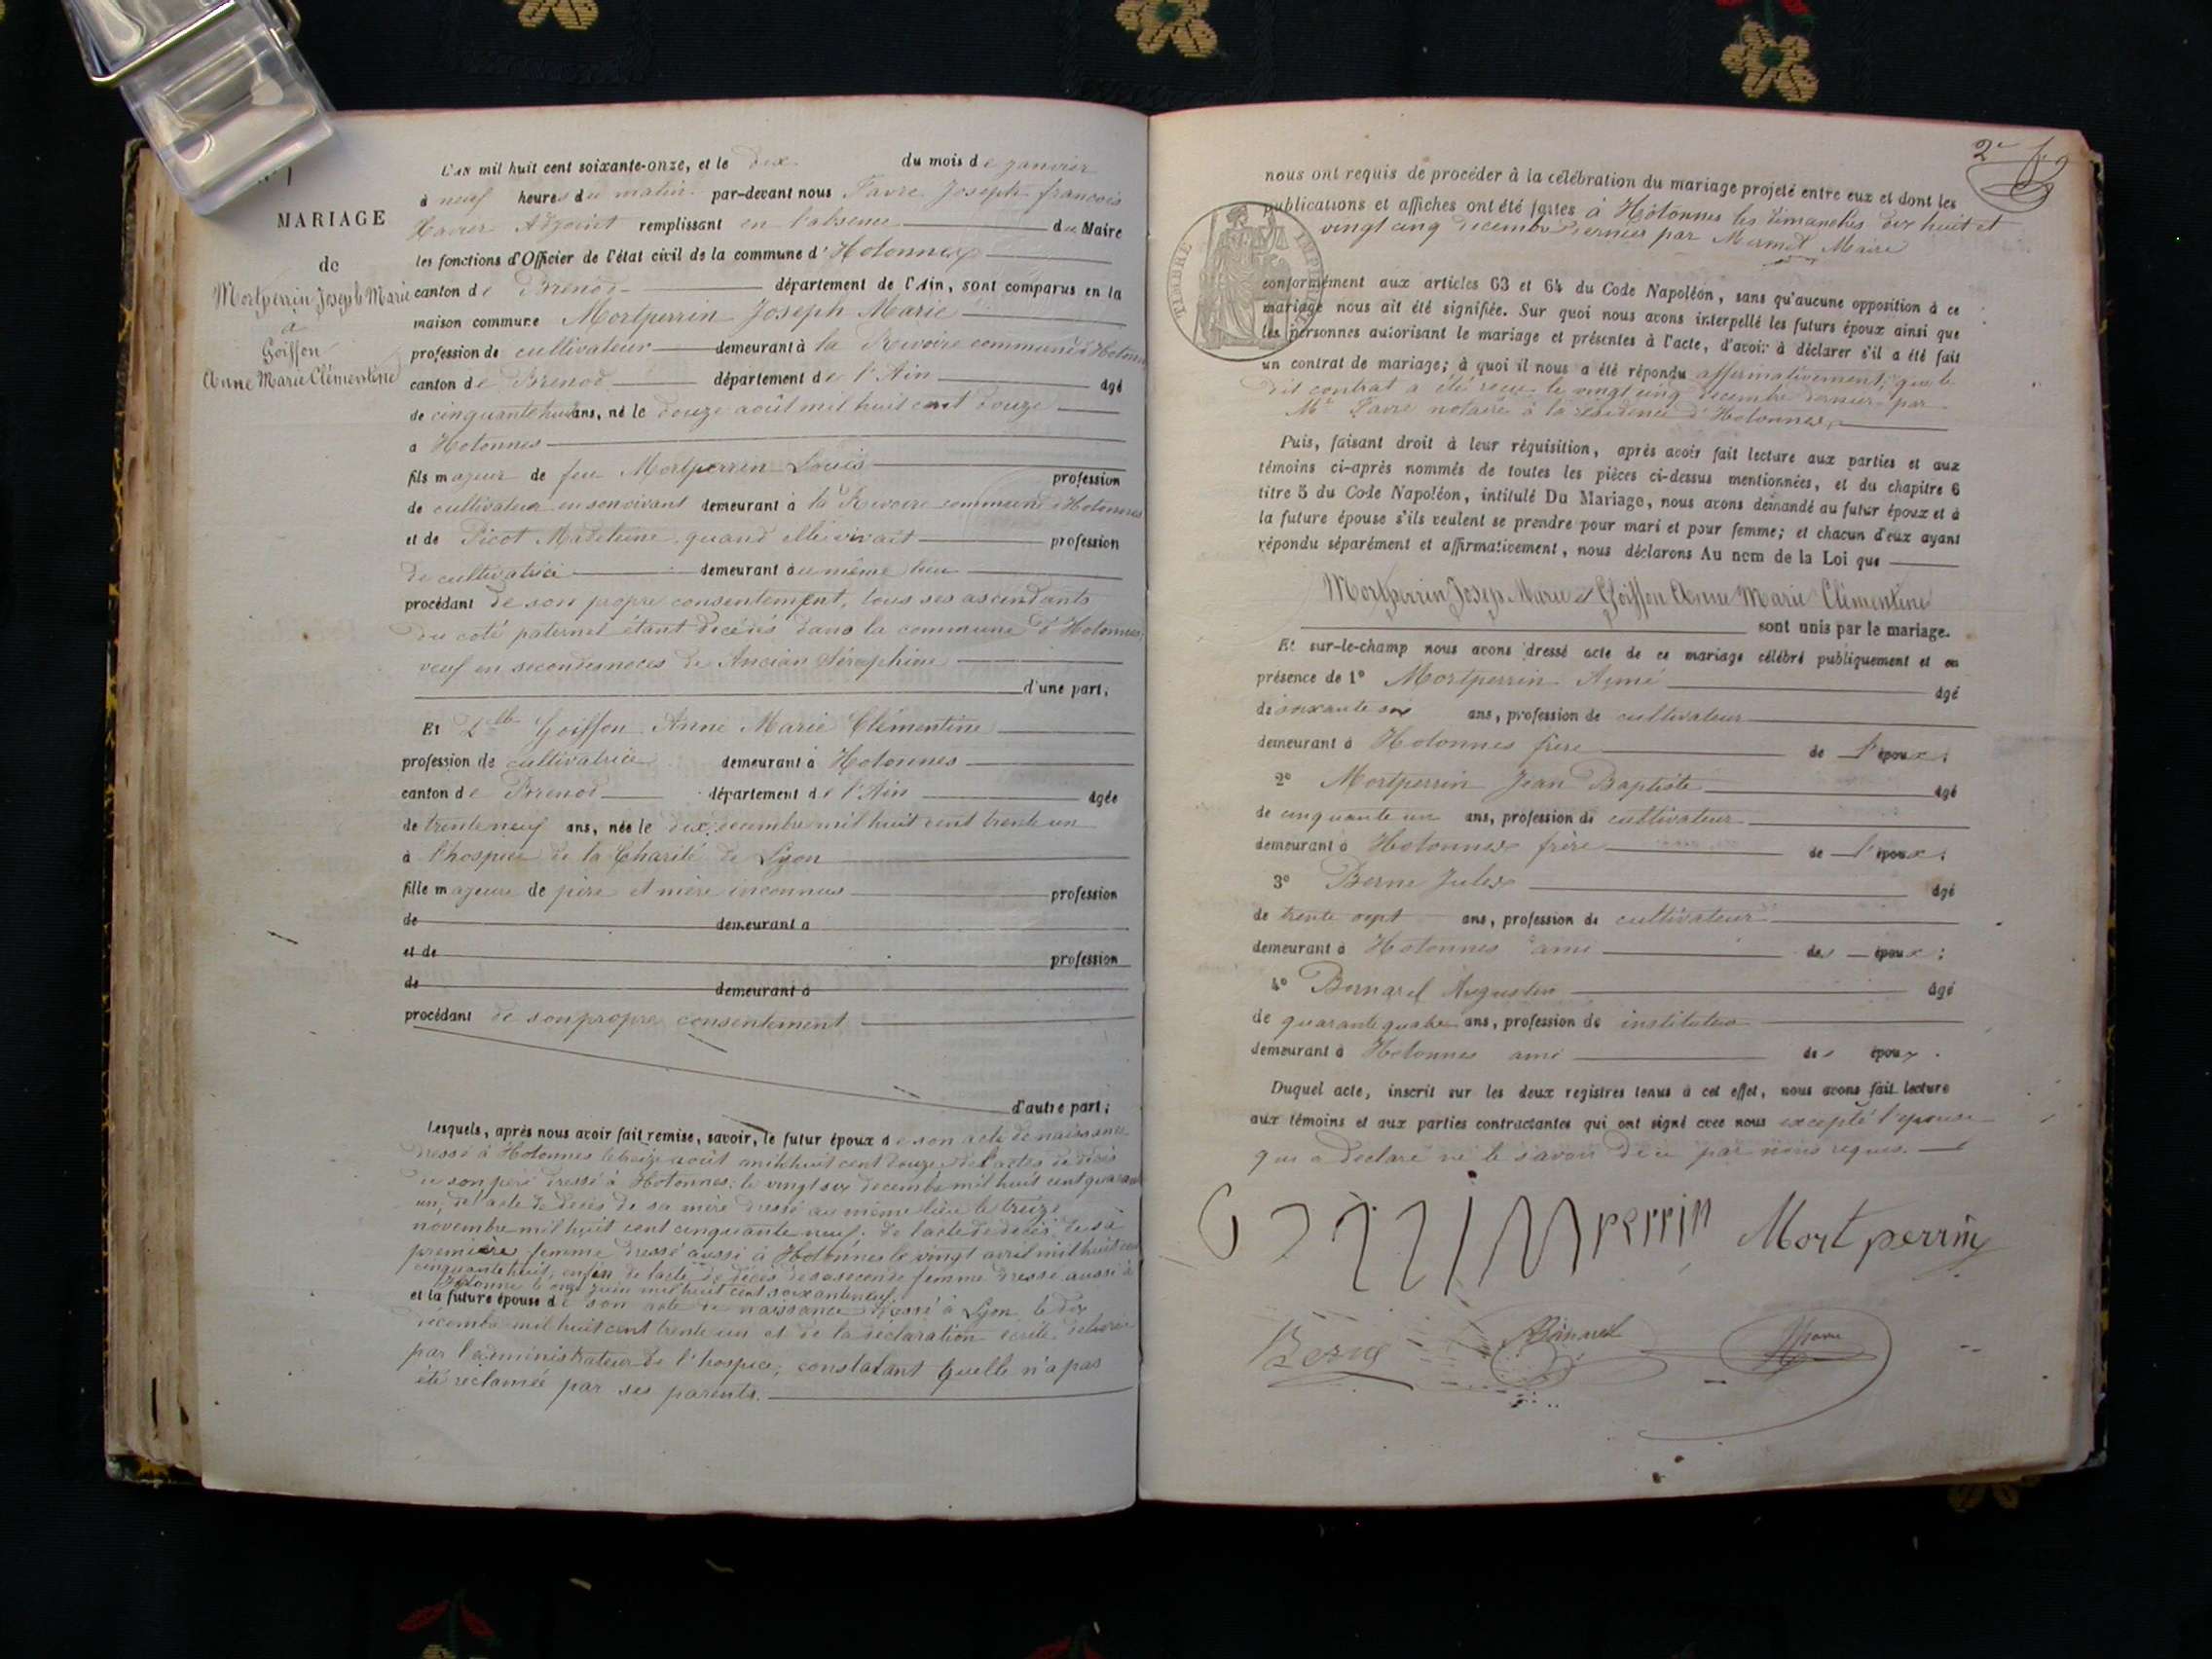 N° 1
MARIAGE
de
Mortperrin Joseph Marie
à
Goiffon
Anne Marie Clémentine
L'AN mil huit cent soixante-onze, et le dix du mois de janvier
à neuf heures du matin par-devant nous Favre Joseph françois
Xavier Adjoint remplissant en l'absence du Maire
les fonctions d'Officier de l'état civil de la commune d'Hotonnes
canton de Brenod département de l'Ain, sont comparus en la
maison commune Mortperrin Joseph Marie
profession de cultivateur demeurant à la Rivoire commune d'Hotonnes
canton de Brenod département de l'Ain âgé
de cinquante huit ans, né le douze août mil huit cent douze
a Hotonnes
fils majeur de feu Mortperrin Louis profession
de cultivateur en son vivant demeurant à la Rivoire commune d'Hotonnes
et de Picot Madeleine quand elle vivait profession
de cultivatrice demeurant au même lieu
procédant de son propre consentement, tous ses ascendants
du coté paternel étant décédés dans la commune d'Hotonnes,
veuf en secondes noces de Ancian Séraphine
d'une part;
Et Dlle Goiffon Anne Marie Clémentine
profession de cultivatrice demeurant à Hotonnes
canton de Brenod département de l'Ain âgée
de trente neuf ans, née le dix decembre mil huit cent trente un
à l'hospice de la Charité de Lyon
fille majeure de père et mère inconnus profession
de demeurant à
et de profession
de demeurant à
procédant de son propre consentement
d'autre part;
Lesquels, après nous avoir fait remise, savoir, le futur époux de son acte de naissance
dressé à Hotonnes le treize août mil huit cent douze, de l'acte de décès
de son père dressé à Hotonnes, le vingt six decembre mil huit cent quarante
un, de l'acte de décès de sa mère dressé au même lieu le treize
novembre mil huit cent cinquante neuf, de l'acte de décès de sa
première femme dressé aussi à Hotonnes le vingt avril mil huit cent
cinquante huit, enfin de l'acte de décès de sa seconde femme dressé aussi à
Hotonne le onze juin mil huit cent soixante neuf,
et la future épouse de son acte de naissance dressé à Lyon le dix
décembre mil huit cent trente un et de la déclaration écrite délivrée
par l'administrateur de l'hospice, constatant quelle n'a pas
été réclamée par ses parents.
2e
nous ont requis de procéder à la célébration du mariage projeté entre eux et dont les
publications et affiches ont été faites à Hotonnes les dimanches dix huit et
vingt cinq décembre dernier par Mermet Maire
TIMBRE IMPÉRIAL
conformément aux articles 63 et 64 du Code Napoléon, sans qu'aucune opposition à ce
mariage nous ait été signifiée. Sur quoi nous avons interpellé les futurs époux ainsi que
les personnes autorisant le mariage et présentes à l'acte, d'avoir à déclarer s'il a été fait
un contrat de mariage; à quoi il nous a été répondu affirmativement, que le
dit contrat a été reçu le vingt cinq décembre dernier par
Me Favre notaire à la résidence d'Hotonnes,
Puis, faisant droit à leur réquisition, après avoir fait lecture aux parties et aux
témoins ci-après nommés de toutes les pièces ci-dessus mentionnées, et du chapitre 6
titre 5 du Code Napoléon, intitulé Du Mariage, nous avons demandé au futur époux et à
la future épouse s'ils veulent se prendre pour mari et pour femme; et chacun d'eux ayant
répondu séparément et affirmativement, nous déclarons Au nom de la Loi que
Mortperrin Josep Marie et Goiffon Anne Marie Clémentine
sont unis par le mariage.
Et sur-le-champ nous avons dressé acte de ce mariage célébré publiquement et en
présence de 1° Mortperrin Aimé âgé
de soixante six ans, profession de cultivateur
demeurant à Hotonnes frère de l'époux;
2° Mortperrin Jean Baptiste âgé
de cinquante un ans, profession de cultivateur
demeurant à Hotonnes frère de l'époux;
3° Berne Jules âgé
de trente sept ans, profession de cultivateur
demeurant à Hotonnes ami des époux;
4° Bornarel Augustin âgé
de quarante quatre ans, profession de instituteur
demeurant à Hotonnes ami des époux.
Duquel acte, inscrit sur les deux registres tenus à cet effet, nous avons fait lecture
aux témoins et aux parties contractantes qui ont signé avec nous excepté l'epouse
qui a déclaré ne le savoir de ce par nous requis.
Mperrin Mortperrin
Berne Bornarel Favre